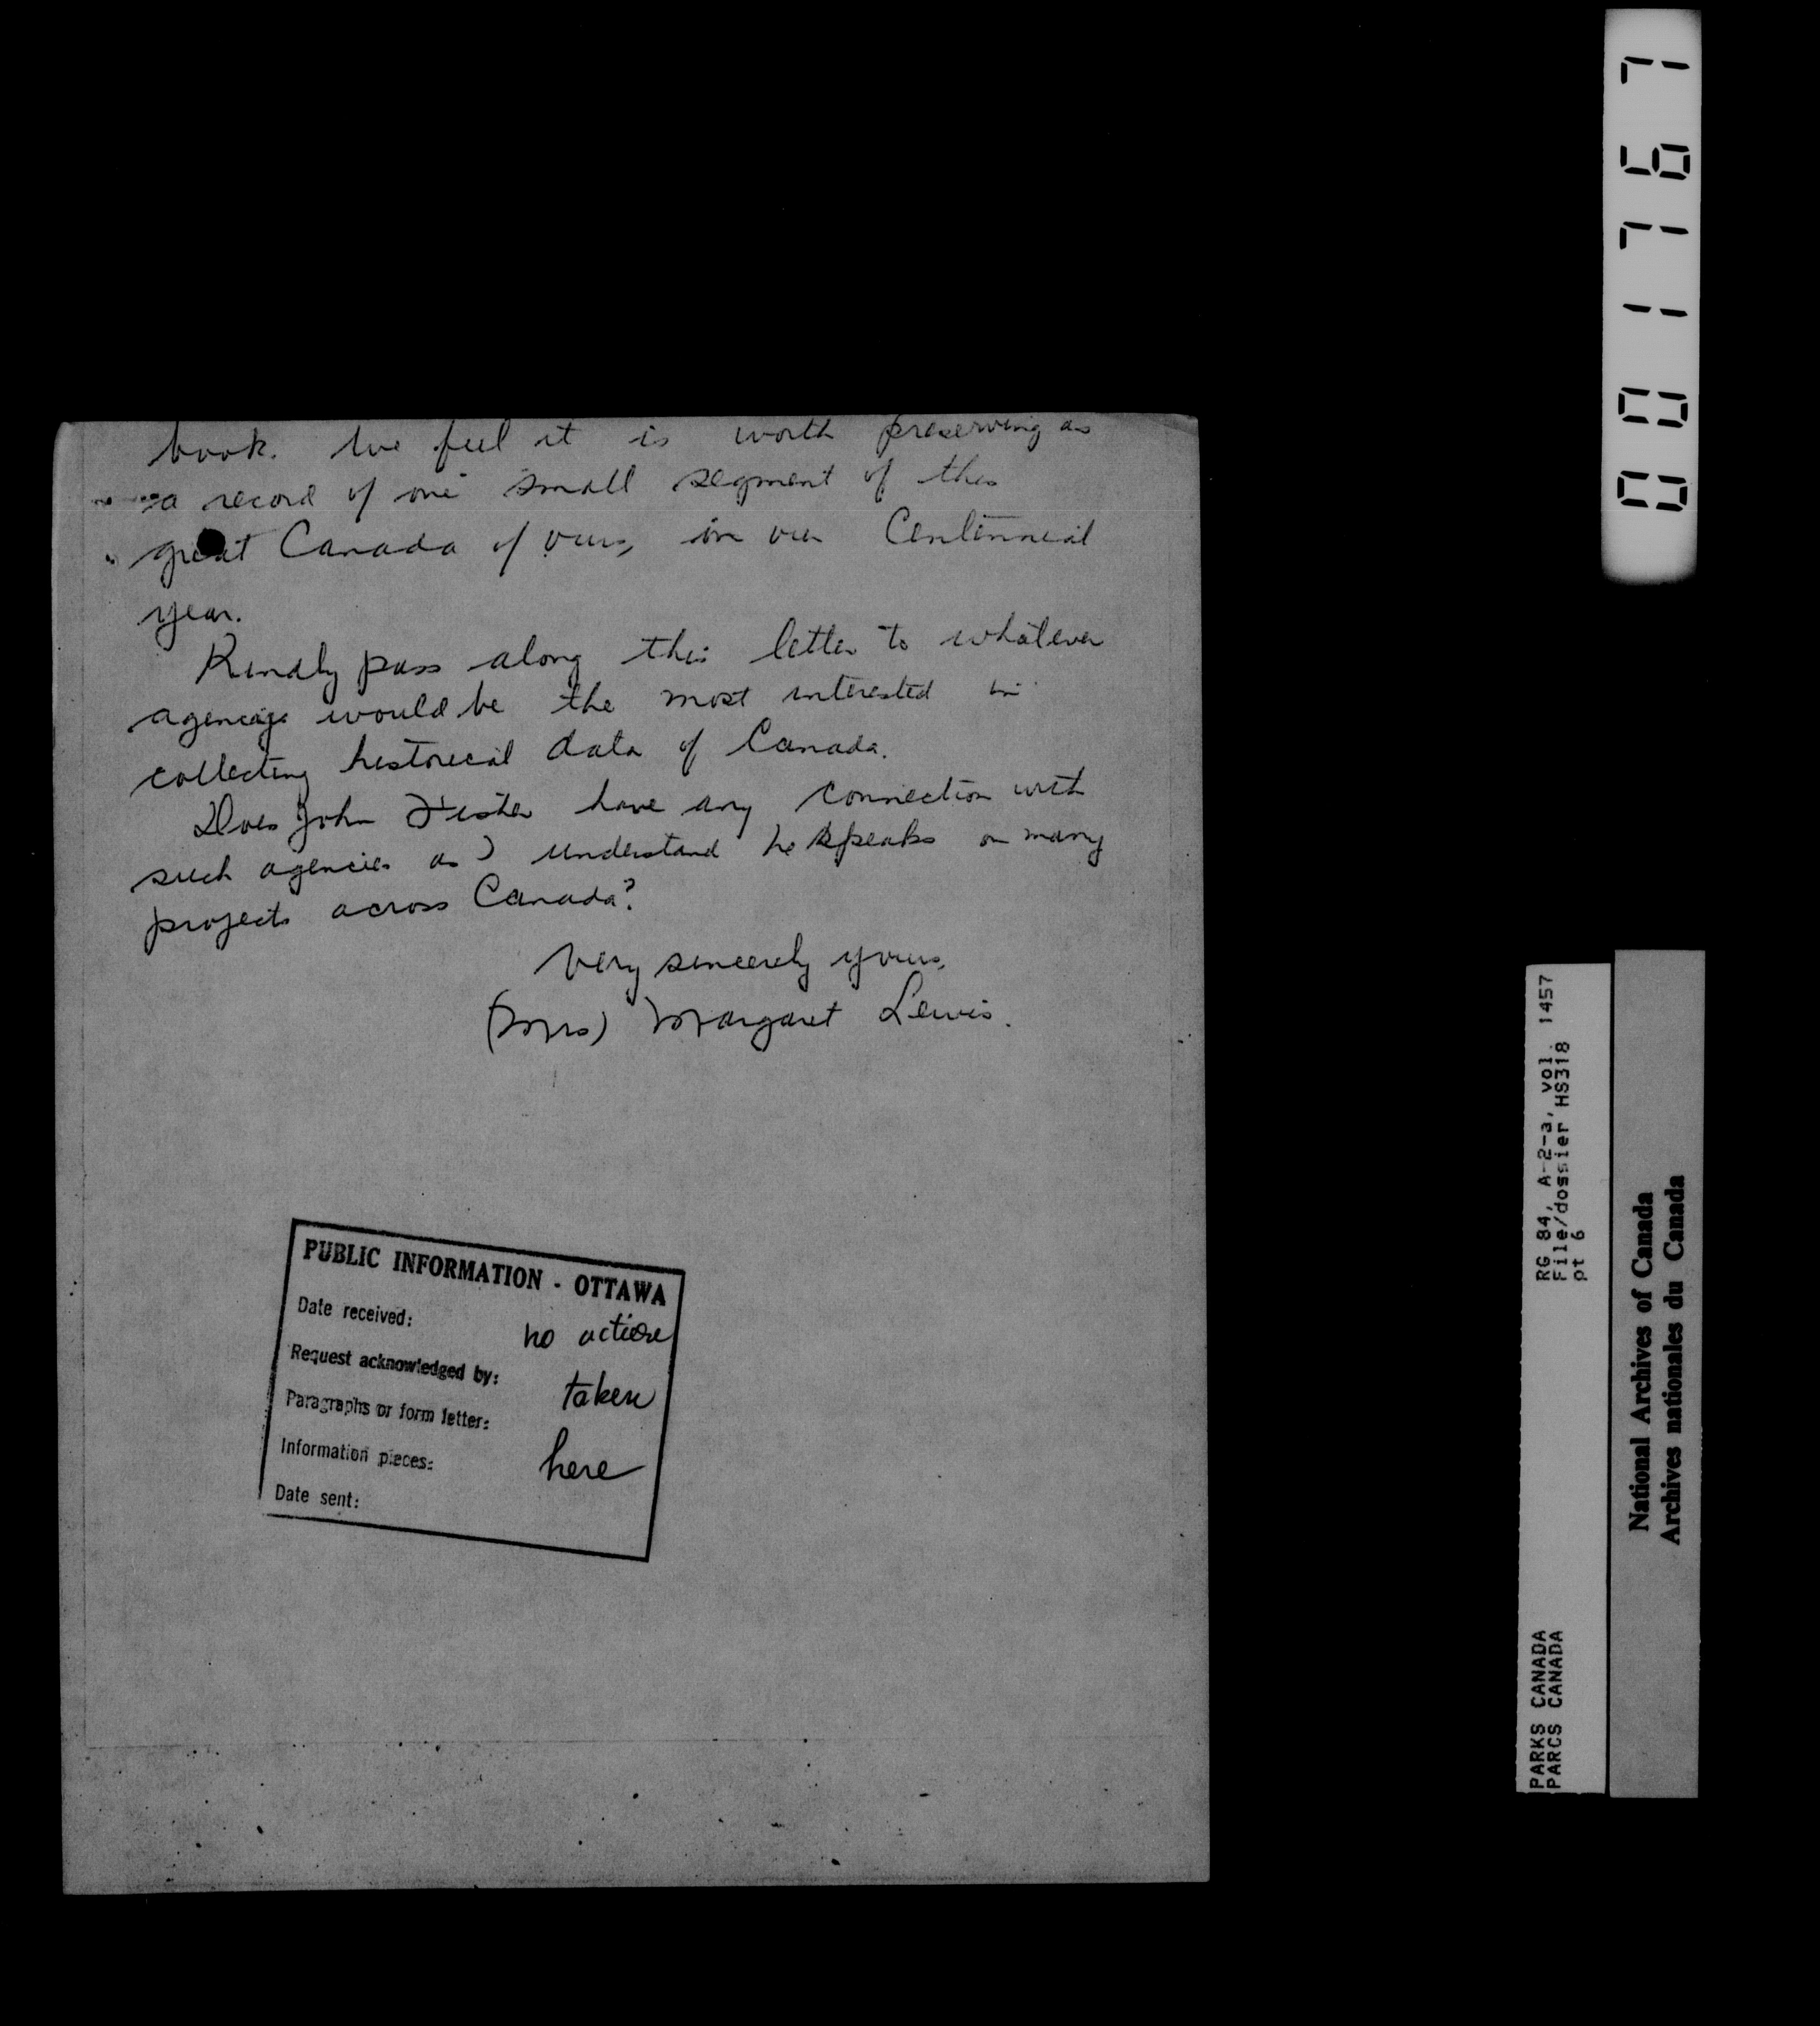 book. We feel it is worth preserving as
a record of one small segment of this
great Canada of ours, in our Centennial
year.
Kindly pass along this letter to whatever
agency would be the most interested in
collecting historical data of Canada.
Does John Fisher have any connection with
such agencies as I understand he speaks on many
projects across Canada?
Very sincerely yours,
(Mrs) Margaret Lewis.
PUBLIC INFORMATION - OTTAWA
Date received:
no action
Request acknowledged by:
taken
Paragraphs or form letter:
Information pieces:
here
Date sent:
RG 84, A-2-a, vol. 1457
File/dossier HS318
pt 6
PARKS CANADA
PARCS CANADA
National Archives of Canada
Archives nationales du Canada